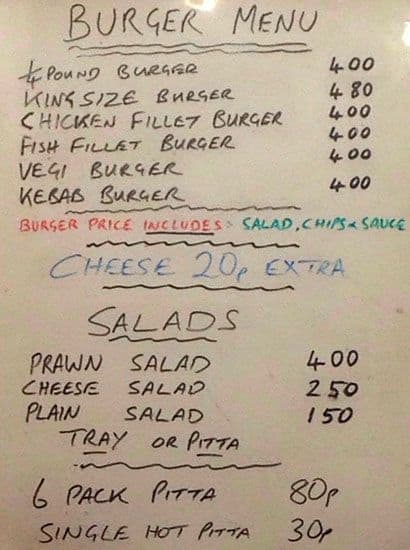 BURGER MENU
1/4 POUND BURGER 4 00
KINGSIZE BURGER 4 80
CHICKEN FILLET BURGER 4 00
FISH FILLET BURGER 4 00
VEGI BURGER 4 00
KEBAB BURGER 4 00
BURGER PRICE INCLUDES: SALAD, CHIPS & SAUCE
CHEESE 20p EXTRA
SALADS
PRAWN SALAD 4 00
CHEESE SALAD 2 50
PLAIN SALAD 1 50
TRAY OR PITTA
6 PACK PITTA 80p
SINGLE HOT PITTA 30p